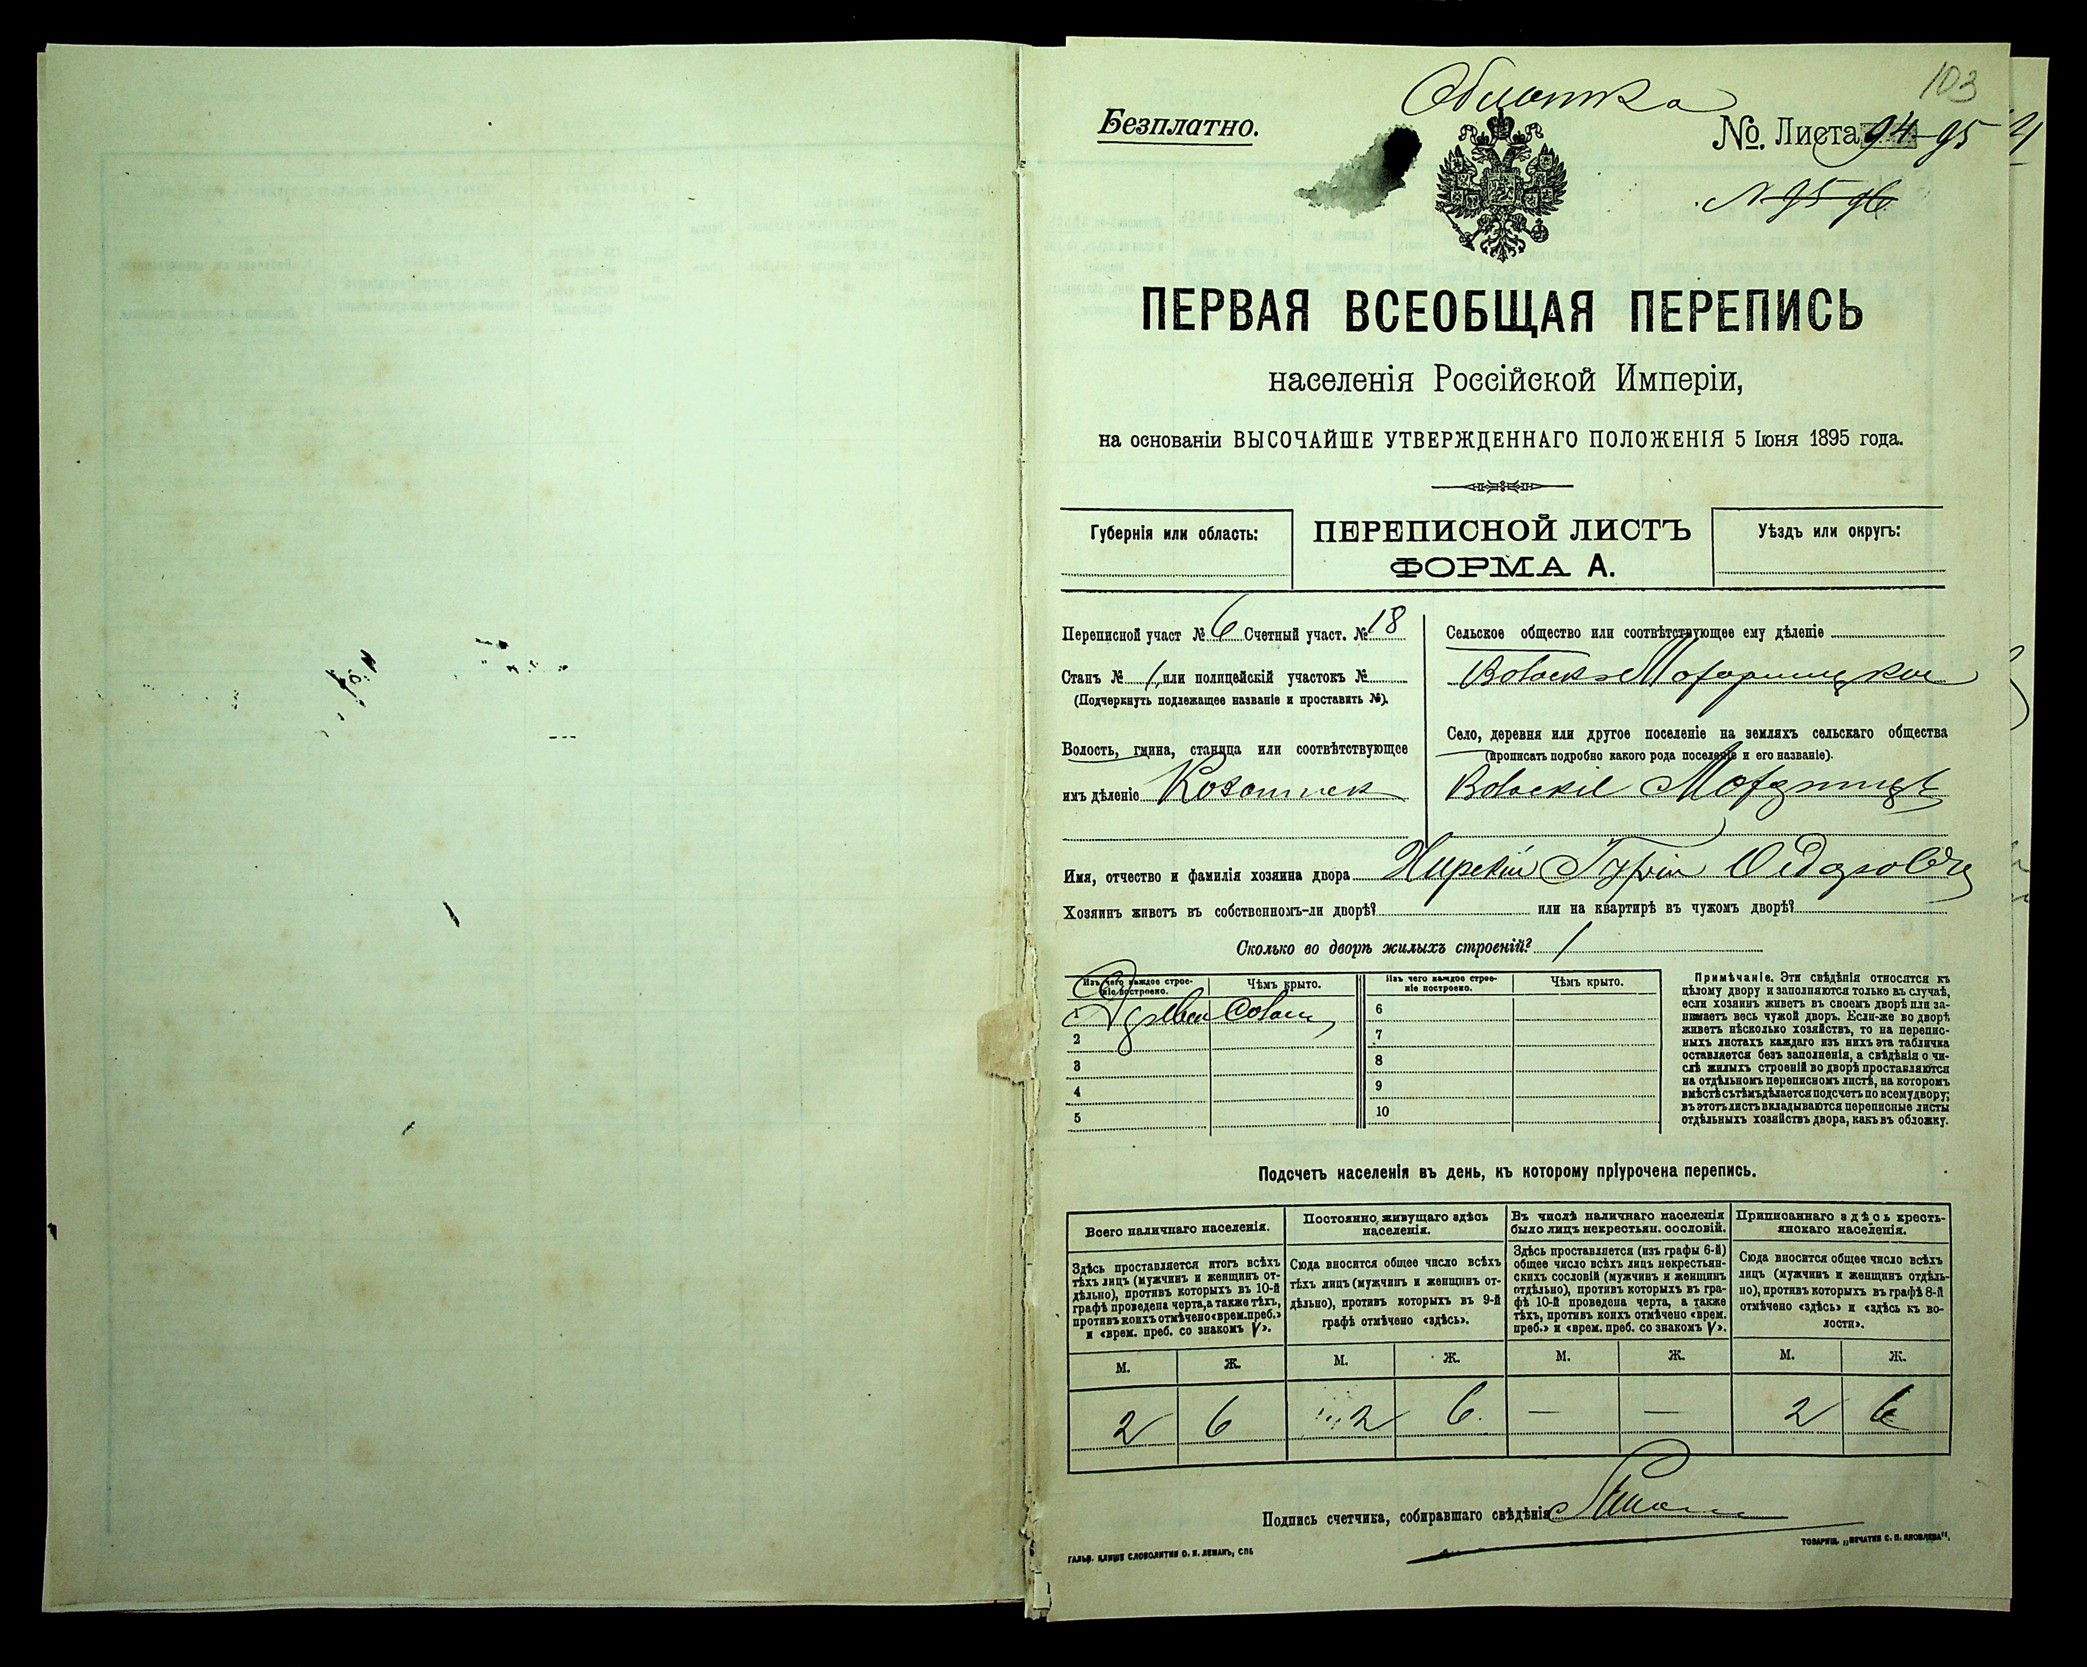 103
Обложка
Безплатно.
№. Листа 94-95
№ 95 96
ПЕРВАЯ ВСЕОБЩАЯ ПЕРЕПИСЬ
населенія Россійской Имперіи,
на основаніи ВЫСОЧАЙШЕ УТВЕРЖДЕННАГО ПОЛОЖЕНІЯ 5 Іюня 1895 года.
Губернія или область:
ПЕРЕПИСНОЙ ЛИСТЪ
ФОРМА А.
Уѣздъ или округъ:
Переписной участ № 6 Счетный участ. № 18
Станъ № 1 или полицейскій участокъ №
(Подчеркнуть подлежащее названіе и проставить №).
Волость, гмина, станица или соотвѣтствующее
имъ дѣленіе
Сельское общество или соотвѣтствующее ему дѣленіе
Село, деревня или другое поселеніе на земляхъ сельскаго общества
(прописать подробно какого рода поселеніе и его названіе).
Имя, отчество и фамилія хозяина двора
Хозяинъ живетъ въ собственномъ-ли дворѣ? или на квартирѣ въ чужомъ дворѣ?
Сколько во дворѣ жилыхъ строеній? 1
Изъ чего каждое строе-
ніе построено.
Чѣмъ крыто.
1
2
3
4
5
Изъ чего каждое строе-
ніе построено.
Чѣмъ крыто.
6
7
8
9
10
Примѣчаніе. Эти свѣдѣнія относятся къ
цѣлому двору и заполняются только въ случаѣ,
если хозяинъ живетъ въ своемъ дворѣ или за-
нимаетъ весь чужой дворъ. Если-же во дворѣ
живетъ нѣсколько хозяйствъ, то на перепис-
ныхъ листахъ каждаго изъ нихъ эта табличка
оставляется безъ заполненія, а свѣдѣнія о чи-
слѣ жилыхъ строеній во дворѣ проставляются
на отдѣльномъ переписномъ листѣ, на которомъ
вмѣстѣ съ тѣмъ дѣлается подсчетъ по всему двору;
въ этотъ листъ вкладываются переписные листы
отдѣльныхъ хозяйствъ двора, какъ въ обложку.
Подсчетъ населенія въ день, къ которому пріурочена перепись.
Всего наличнаго населенія.
Здѣсь проставляется итогъ всѣхъ
тѣхъ лицъ (мужчинъ и женщинъ от-
дѣльно), противъ которыхъ въ 10-й
графѣ проведена черта, а также тѣхъ,
противъ коихъ отмѣчено «врем. преб.»
и «врем. преб. со знакомъ V».
М. Ж.
2 6
Постоянно живущаго здѣсь
населенія.
Сюда вносится общее число всѣхъ
тѣхъ лицъ (мужчинъ и женщинъ от-
дѣльно), противъ которыхъ въ 9-й
графѣ отмѣчено «здѣсь».
М. Ж.
2 6
Въ числѣ наличнаго населенія
было лицъ некрестьян. сословій.
Здѣсь проставляется (изъ графы 6-й)
общее число всѣхъ лицъ некрестьян-
скихъ сословій (мужчинъ и женщинъ
отдѣльно), противъ которыхъ въ гра-
фѣ 10-й проведена черта, а также
тѣхъ, противъ коихъ отмѣчено «врем.
преб.» и «врем. преб. со знакомъ V».
М. Ж.
— —
Приписаннаго здѣсь кресть-
янскаго населенія.
Сюда вносится общее число всѣхъ
лицъ (мужчинъ и женщинъ отдѣль-
но), противъ которыхъ въ графѣ 8-й
отмѣчено «здѣсь» и «здѣсь къ во-
лости».
М. Ж.
2 6
Подпись счетчика, собиравшаго свѣдѣнія
ГАЛЬВ. КЛИШЕ СЛОВОЛИТНИ О. И. ЛЕМАНЪ, СПБ
ТОВАРИЩ. „ПЕЧАТНЯ С. П. ЯКОВЛЕВА“.